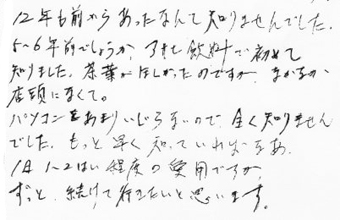 12年も前からあったなんて知りませんでした。
5〜6年前でしょうか、飲んで初めて
知りました。茶葉がほしかったのですが、
店頭になくて。
パソコンをあまりいじらないので全く知りません
でした。もっと早く知っていればなあ。
1日1〜2はい程度の愛用ですが、
ずっと、続けて行きたいと思います。